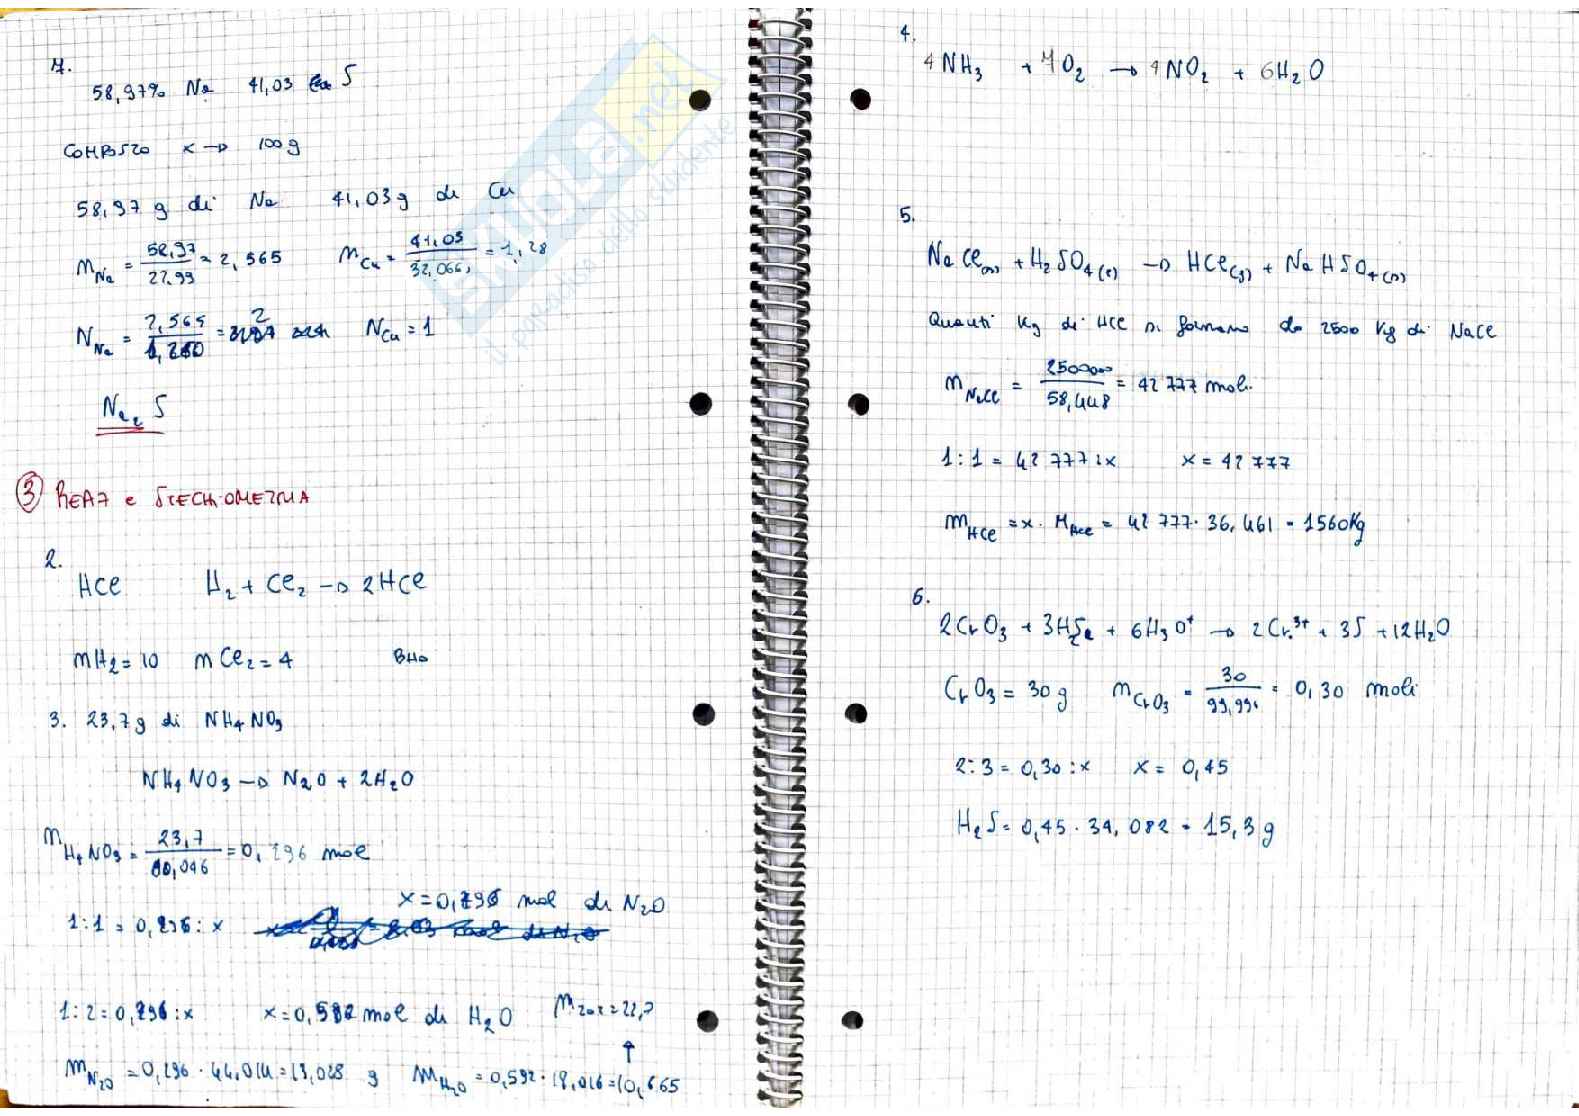 7.
58,97% Na 41,03 S
COMPOSTO x → 100g
58,97 g di Na 41,03g di Cu
n Na = 58,97 / 22,99 = 2,565 n Cu = 41,03 / 32,066 = 1,28
N Na = 2,565 / 1,280 = 2 N Cu = 1
Na₂S
③ REAZ e STECHIOMETRIA
2.
HCl H₂ + Cl₂ → 2HCl
nH₂ = 10 nCl₂ = 4 BHo
3. 23,7g di NH₄NO₃
NH₄NO₃ → N₂O + 2H₂O
n H₄NO₃ = 23,7 / 80,046 = 0,296 mol
x = 0,296 mol di N₂O
1:1 = 0,296 : x
1:2 = 0,296 : x x = 0,592 mol di H₂O m TOT = 23,7
↑
m N₂O = 0,296 · 44,014 = 13,028 g m H₂O = 0,592 · 18,016 = 10,665
4.
4NH₃ + 7O₂ → 4NO₂ + 6H₂O
5.
NaCl(s) + H₂SO₄(l) → HCl(g) + NaHSO₄(s)
Quanti Kg di HCl si formano da 2500 Kg di NaCl
n NaCl = 2500000 / 58,448 = 42 777 moli
1:1 = 42 777 : x x = 42 777
m HCl = x · M HCl = 42 777 · 36,461 = 1560Kg
6.
2CrO₃ + 3H₂S + 6H₃O⁺ → 2Cr³⁺ + 3S + 12H₂O
CrO₃ = 30g n CrO₃ = 30 / 99,994 = 0,30 moli
2:3 = 0,30 : x x = 0,45
H₂S = 0,45 · 34,082 = 15,3g
skuola.net
il paradiso dello studente